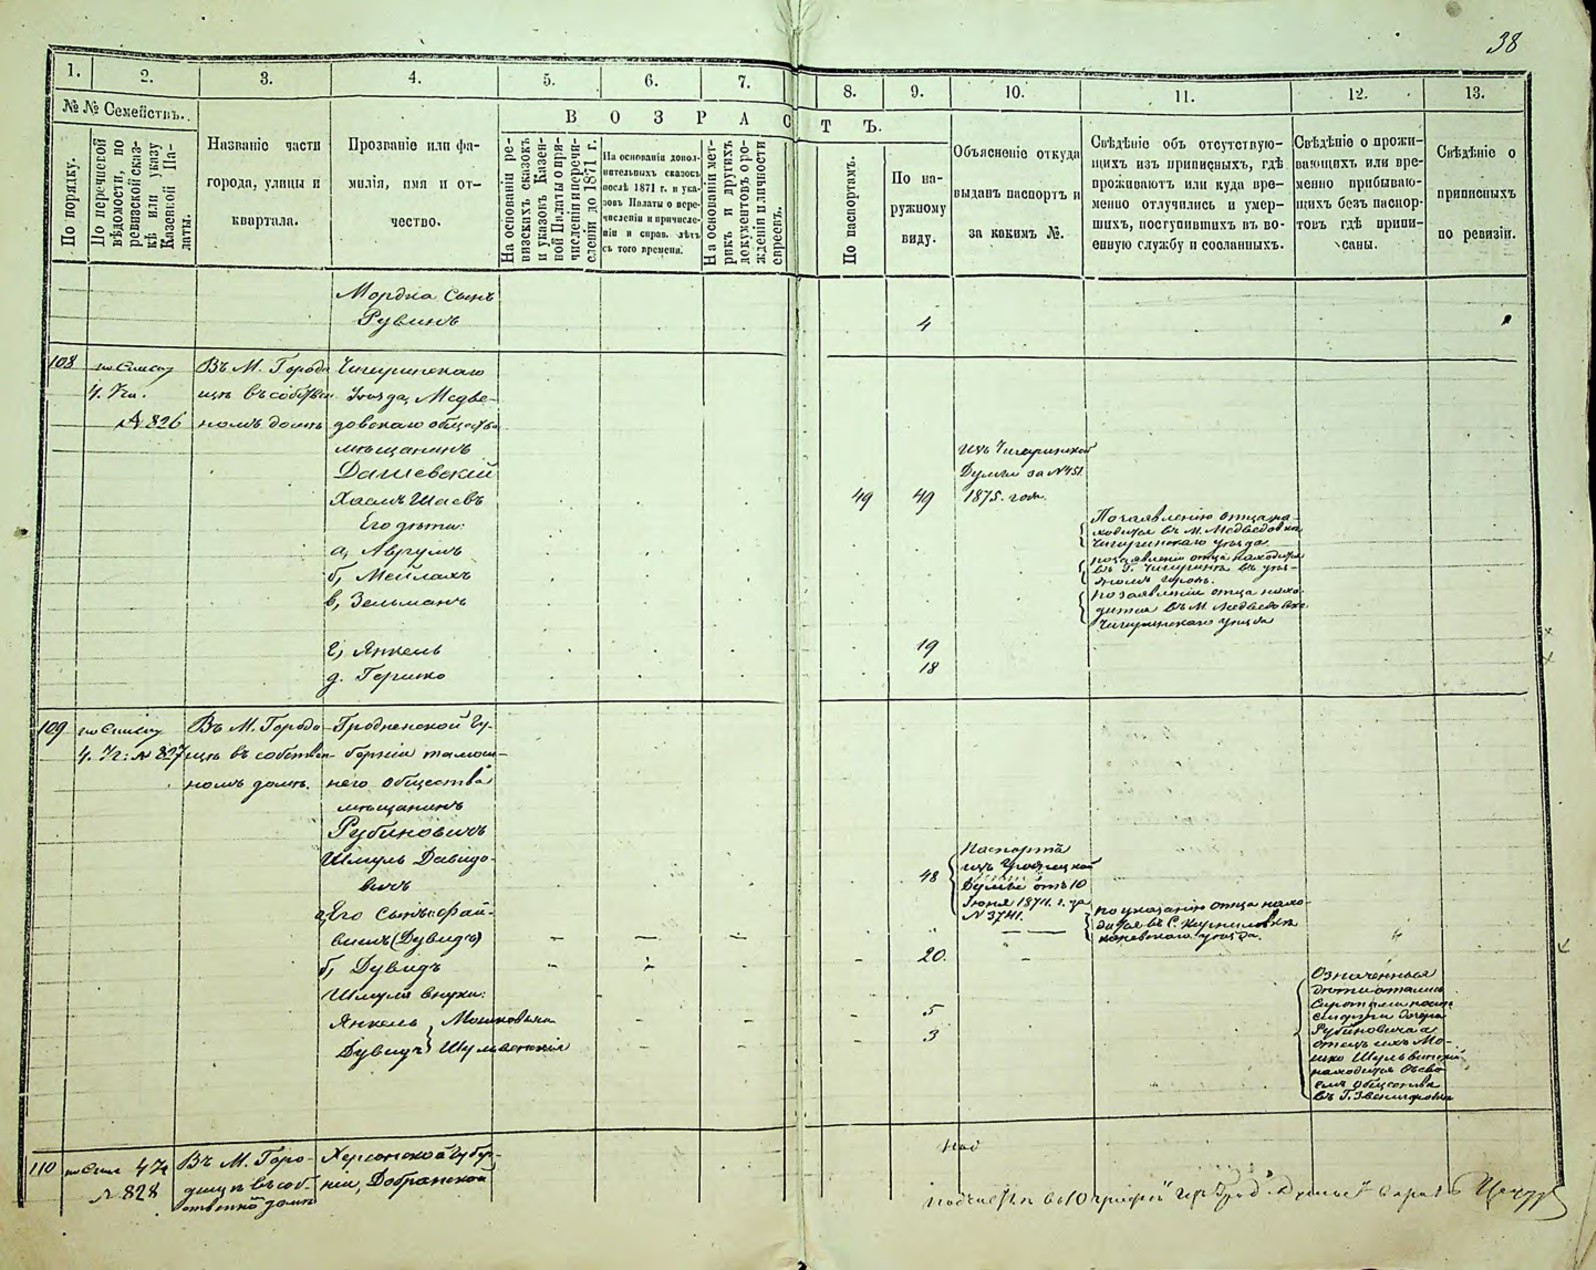 38
1. 2. 3. 4. 5. 6. 7. 8. 9. 10. 11. 12. 13.
№ № Семействъ.
По порядку.
По перечневой вѣдомости, по ревизской сказкѣ или указу Казенной Палаты.
Названіе части
города, улицы и
квартала.
Прозваніе или фа-
милія, имя и от-
чество.
ВОЗРАСТЪ.
На основаніи ре-
визскихъ сказокъ
и указовъ Казен-
ной Палаты о при-
численіи и перечи-
сленіи до 1871 г.
На основаніи допол-
нительныхъ сказокъ
послѣ 1871 г. и ука-
зовъ Палаты о пере-
численіи и причисле-
ніи и справ. лѣтъ
съ того времени.
На основаніи мет-
рикъ и другихъ
документовъ о ро-
жденіи и личности
евреевъ.
По паспортамъ.
По на-
ружному
виду.
Объясненіе откуда
выданъ паспортъ и
за какимъ №.
Свѣдѣніе объ отсутствую-
щихъ изъ приписныхъ, гдѣ
проживаютъ или куда вре-
менно отлучились и умер-
шихъ, поступившихъ въ во-
енную службу и сосланныхъ.
Свѣдѣніе о прожи-
вающихъ или вре-
менно прибываю-
щихъ безъ паспор-
товъ гдѣ припи-
саны.
Свѣдѣніе о
приписныхъ
по ревизіи.
Мордка сынъ
Рувинъ 4
108 по списку Въ М. Городи Чигиринскаго
Ч. Уѣзда, Медве-
№ 826 номъ домѣ довскаго общества
мѣщанинъ
Дашевскій
Хаимъ Шаевъ 49 49
изъ Чигиринской
Думы за №451
1875. года.
Его дѣти:
а, Аврумъ
По заявленію отца на-
ходится въ М. Медведовкѣ
Чигиринскаго уѣзда
б, Мейлахъ
по заявленію отца находится
въ Г. Чигиринѣ въ
в, Зельманъ
по заявленію отца нахо-
дится въ М. Медведовкѣ
Чигиринскаго уѣзда
г, Янкель 19
д. Гершко 18
109 по списку Въ М. Городи- Гродненской Гу-
№ 827 щѣ въ собствен- берніи тамош-
номъ домѣ. него общества
мѣщанинъ
Рубиновичъ
Шмуль Давидо-
вичъ 48
Паспортъ
изъ
Думы отъ 10
Іюня 1874. г. за
N 3741.
а, Его сынъ: Фай-
вишъ (Дувидъ)
по указанію отца нахо-
дится въ С.
уѣзда.
б, Дувидъ 20.
Шмуля внуки:
Янкель 5
Дувидъ 3
Мошковичи
Означенные
дѣти остались
сиротами после
смерти дочери
Рубиновича а
отецъ ихъ Мо-
шко
находится въ сво-
емъ обществѣ
въ Г. Звенигородкѣ
110 Въ М. Горо- Херсонской Губер-
№ 828 дищѣ въ соб- ніи, Добрянской
ственномъ домѣ